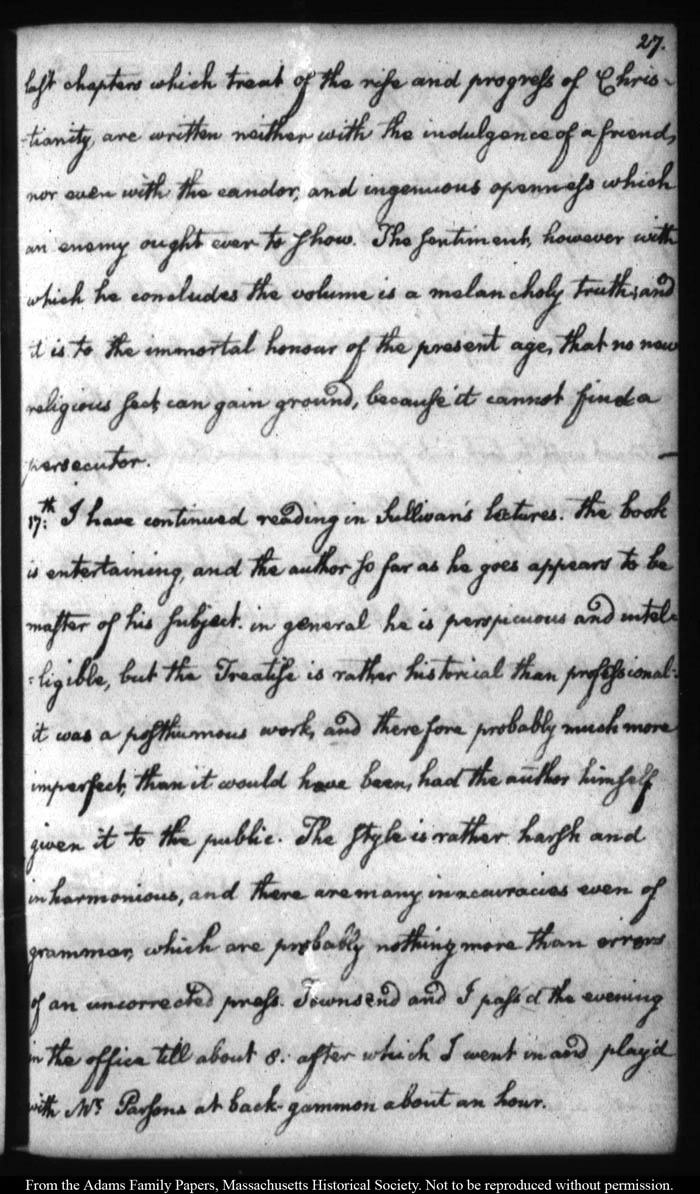 27.
last chapters which treat of the rise and progress of Chris-
-tianity, are written neither with the indulgence of a friend,
nor even with the candor, and ingenuous openness which
an enemy ought ever to show. The sentiment, however with
which he concludes the volume is a melancholy truth; and
it is to the immortal honour of the present age, that no new
religious sect can gain ground, because it cannot find a
persecutor.
17th: I have continued reading in Sullivan's lectures. the book
is entertaining, and the author so far as he goes appears to be
master of his subject. in general he is perspicuous and intel-
-ligible, but the Treatise is rather historical than professional:
it was a posthumous work, and therefore probably much more
imperfect, than it would have been, had the author himself
given it to the public. The style is rather harsh and
inharmonious, and there are many inaccuracies even of
grammar, which are probably nothing more than errors
of an uncorrected press. Townsend and I pass'd the evening
in the office till about 8. after which I went in and play'd
with Mrs Parsons at back-gammon about an hour.
From the Adams Family Papers, Massachusetts Historical Society. Not to be reproduced without permission.